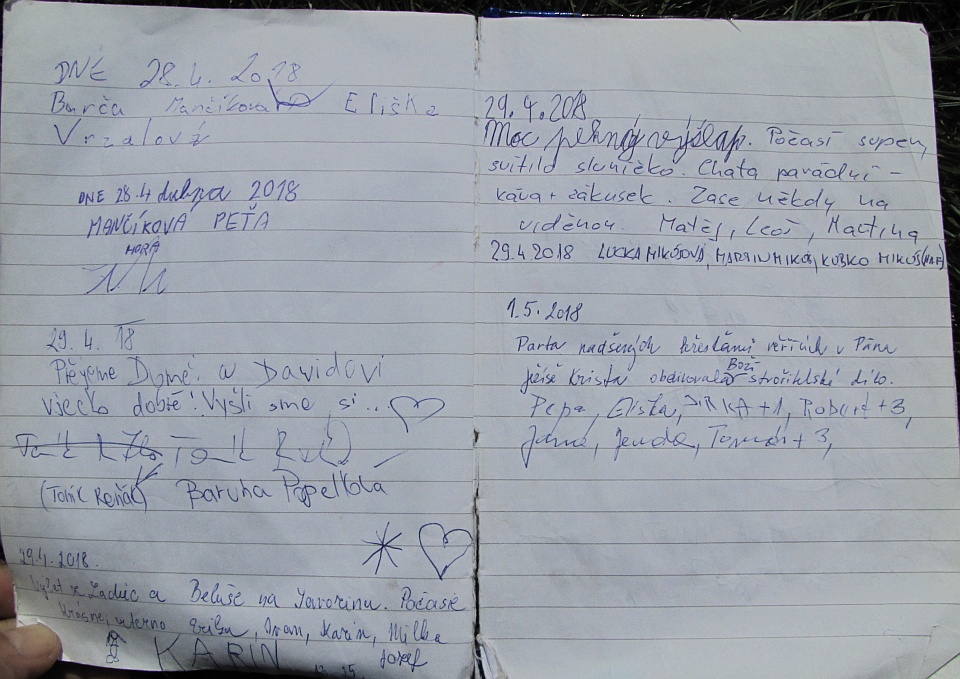 DNE 28.4. 2018
Barča Mančíková Eliška
Vrzalová
DNE 28.4 dubna 2018
MANČÍKOVÁ PEŤA
HORÁ
29. 4. 18
Přejeme a Davidovi
všecko dobré! Vyšli sme si...
(Toník Reňák) Baruna Popelkova
29.4. 2018.
Výlet z Ladiec a Beluše na Javorinu. Počasie
krásne, Ivan, Karin, Milka
Jozef
KARIN
29.4.2018
Moc pěkný výšlap. Počasí super,
svítilo sluníčko. Chata parádní -
káva + zákusek. Zase někdy na
viděnou. Matěj, Leoš, Martina
29.4.2018 LUCKA MIKÓŠOVÁ, MARTIN MIKÓŠ, KUBKO MIKÓŠ (HAF)
1.5.2018
Parta nadšených křesťanů věřících v Pána
Ježíše Krista obdivovala Boží stvořitelské dílo.
Pepa, Eliška, JIRKA+1, Robert+3,
Jana, Jenda, Tomáš+3,